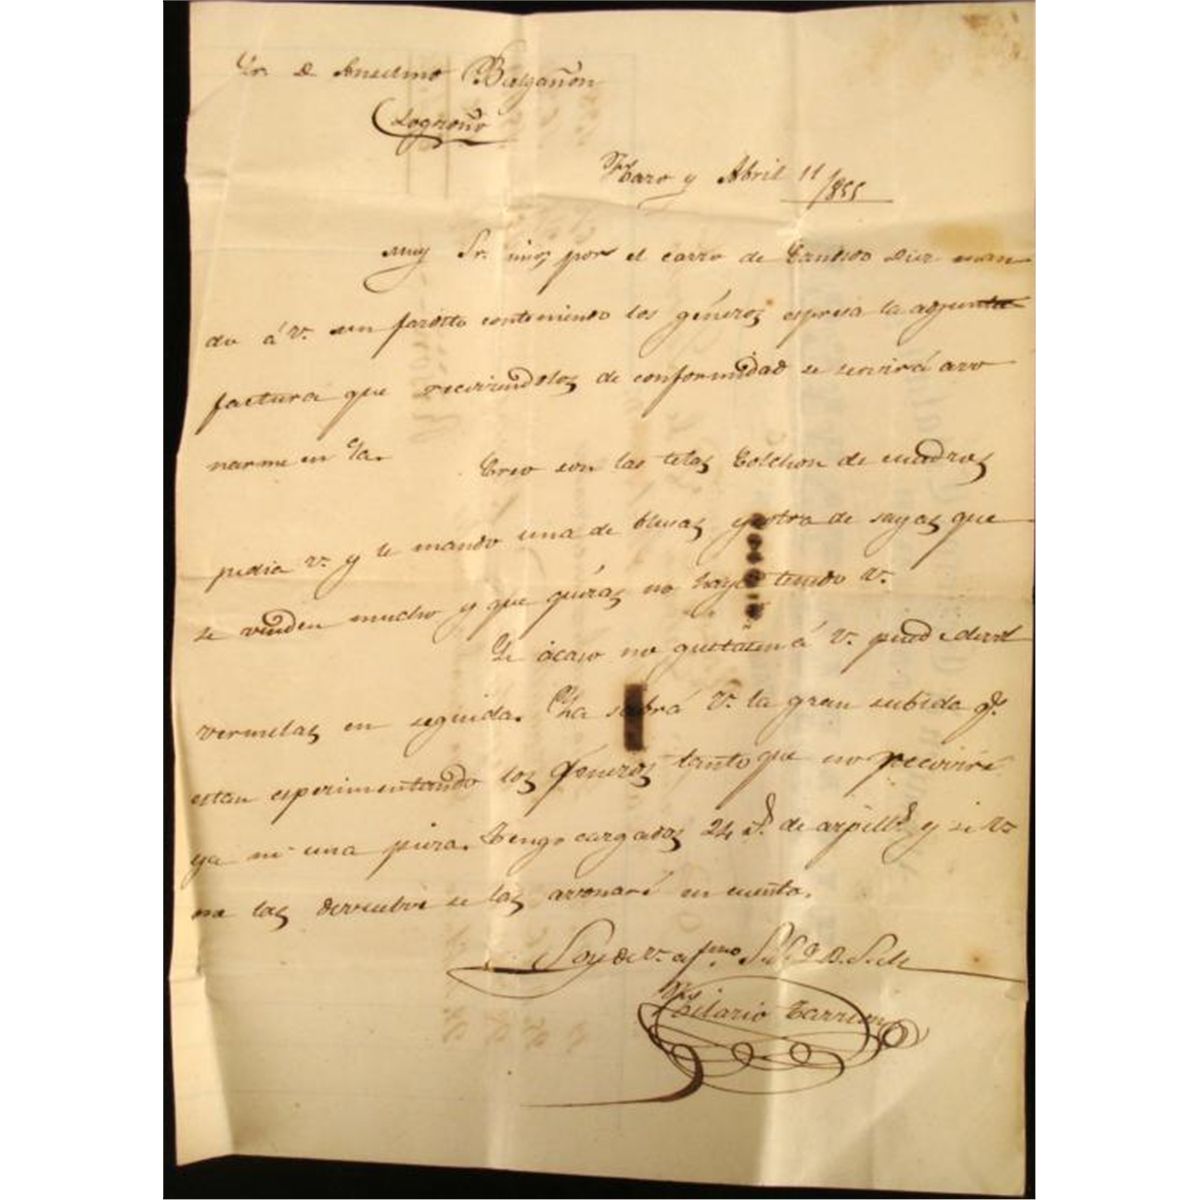 Sr. D. Anselmo Bulgañon
Logroño
Haro y Abril 11/855
Muy Sr. mio, por el carro de Candido Diez man
do á V. un fardito conteniendo los géneros espresa la adjunta
factura que reciviendolos de conformidad se servirá avo
narme en
Creo son las telas Colchon de cuadros
pedia V. y le mando una de blusas y otra de sayas que
se venden mucho y que quizas no haya tenido V.
Si acaso no gustasen á V. puede devol
vermelas en seguida. Ya sabrá V. la gran subida q.
estan esperimentando los géneros tanto que no recivire
ya ni una pieza. Tengo cargados 24 de arpill.s y si V.
me las devuelve se las avonaré en cuenta.
Soy de V. afmo S. S. Q. B. S. M.
Hilario